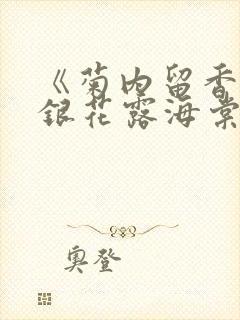 《菊内留香
银花露海棠
奥登